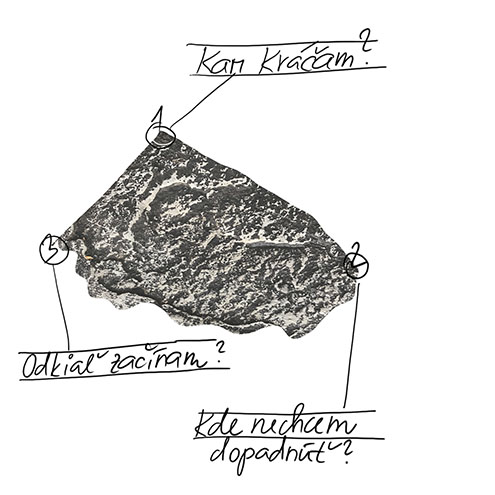 Kam kráčam?
1
3
2
Odkiaľ začínam?
Kde nechcem
dopadnúť?